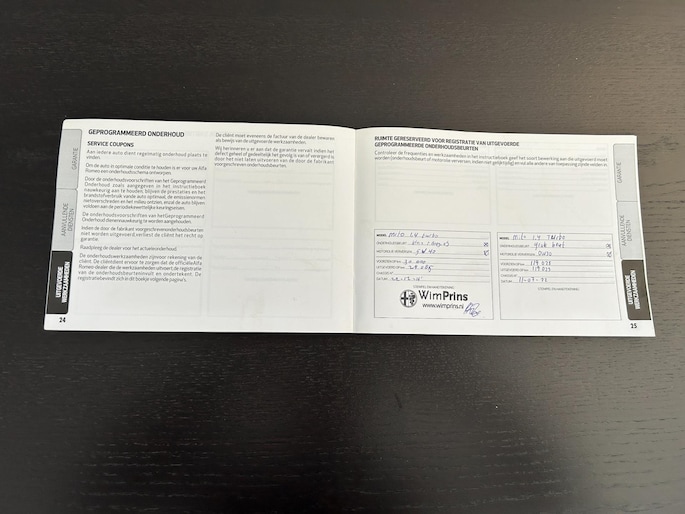 GEPROGRAMMEERD ONDERHOUD
SERVICE COUPONS
Aan iedere auto dient regelmatig onderhoud plaats te
vinden.
Om de auto in optimale conditie te houden is er voor uw Alfa
Romeo een onderhoudsschema ontworpen.
Door de onderhoudsvoorschriften van het Geprogrammeerd
Onderhoud zoals aangegeven in het instructieboek
nauwkeurig aan te houden, blijven de prestaties en het
brandstofverbruik van de auto optimaal, de emissienormen
niet overschreden en het milieu ontzien, en zal de auto blijven
voldoen aan de periodieke wettelijke keuringseisen.
De onderhoudsvoorschriften van het Geprogrammeerd
Onderhoud dienen nauwkeurig te worden aangehouden.
Indien de door de fabrikant voorgeschreven onderhoudsbeurten
niet worden uitgevoerd, verliest de cliënt het recht op
garantie.
Raadpleeg de dealer voor het actuele onderhoud.
De onderhoudswerkzaamheden zijn voor rekening van de
cliënt. De cliënt dient ervoor te zorgen dat de officiële Alfa
Romeo-dealer die de werkzaamheden uitvoert de registratie
van de onderhoudsbeurten invult en ondertekent. De
registratie bevindt zich in dit boekje volgende pagina's.
De cliënt moet eveneens de factuur van de dealer bewaren
als bewijs van de uitgevoerde werkzaamheden.
Wij herinneren u er aan dat de garantie vervalt indien het
defect geheel of gedeeltelijk het gevolg is van of verergerd is
door het niet laten uitvoeren van de door de fabrikant
voorgeschreven onderhoudsbeurten.
GARANTIE
AANVULLENDE
DIENSTEN
UITGEVOERDE
WERKZAAMHEDEN
24
RUIMTE GERESERVEERD VOOR REGISTRATIE VAN UITGEVOERDE
GEPROGRAMMEERDE ONDERHOUDSBEURTEN
Controleer de frequenties en werkzaamheden in het instructieboek
MODEL Mito 1.4 turbo
ONDERHOUDSBEURT
MOTOROLIE VERVERSEN 5W40
VOORZIEN OP km 30.000
UITGEVOERD OP km
CHASSIS Nr
DATUM
STEMPEL EN HANDTEKENING
WimPrins
www.wimprins.nl
MODEL Mito 1.4 Turbo
ONDERHOUDSBEURT
MOTOROLIE VERVERSEN
VOORZIEN OP km
UITGEVOERD OP km
CHASSIS Nr
DATUM
STEMPEL EN HANDTEKENING
GARANTIE
AANVULLENDE
DIENSTEN
UITGEVOERDE
WERKZAAMHEDEN
25